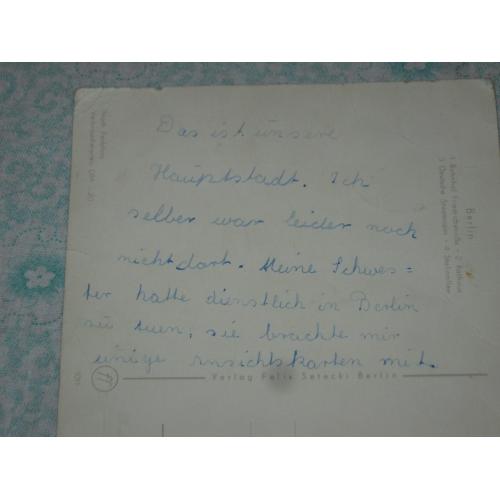 Das ist unsere
Hauptstadt. Ich
selber war leider noch
nicht dort. Meine Schwes=
ter hatte dienstlich in Berlin
zu tuen, sie brachte mir
einige Ansichtskarten mit.
Verlag Felix Setecki Berlin
Berlin
1 Bahnhof Friedrichstraße - 2 Rathaus
3 Deutsche Staatsoper - 4 Stalinallee